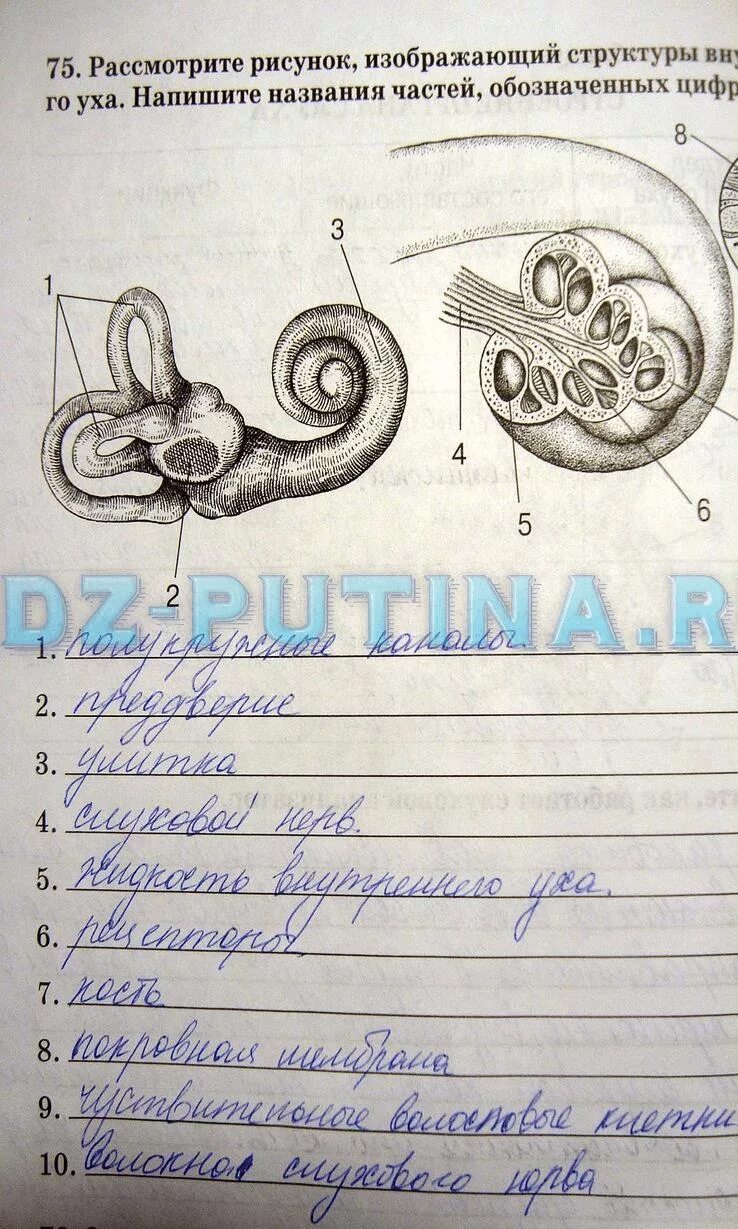 75. Рассмотрите рисунок, изображающий структуры вну
го уха. Напишите названия частей, обозначенных цифр
8
3
1
4
6
5
2
DZ-PUTINA.R
1. полукружные каналы.
2. преддверие
3. улитка
4. слуховой нерв.
5. жидкость внутреннего уха.
6. рецепторы.
7. кость
8. покровная мембрана
9. чуствительные волосковые клетки
10. волокна слухового нерва